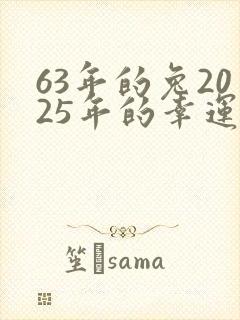 63年的兔20
25年的幸運
笙sama